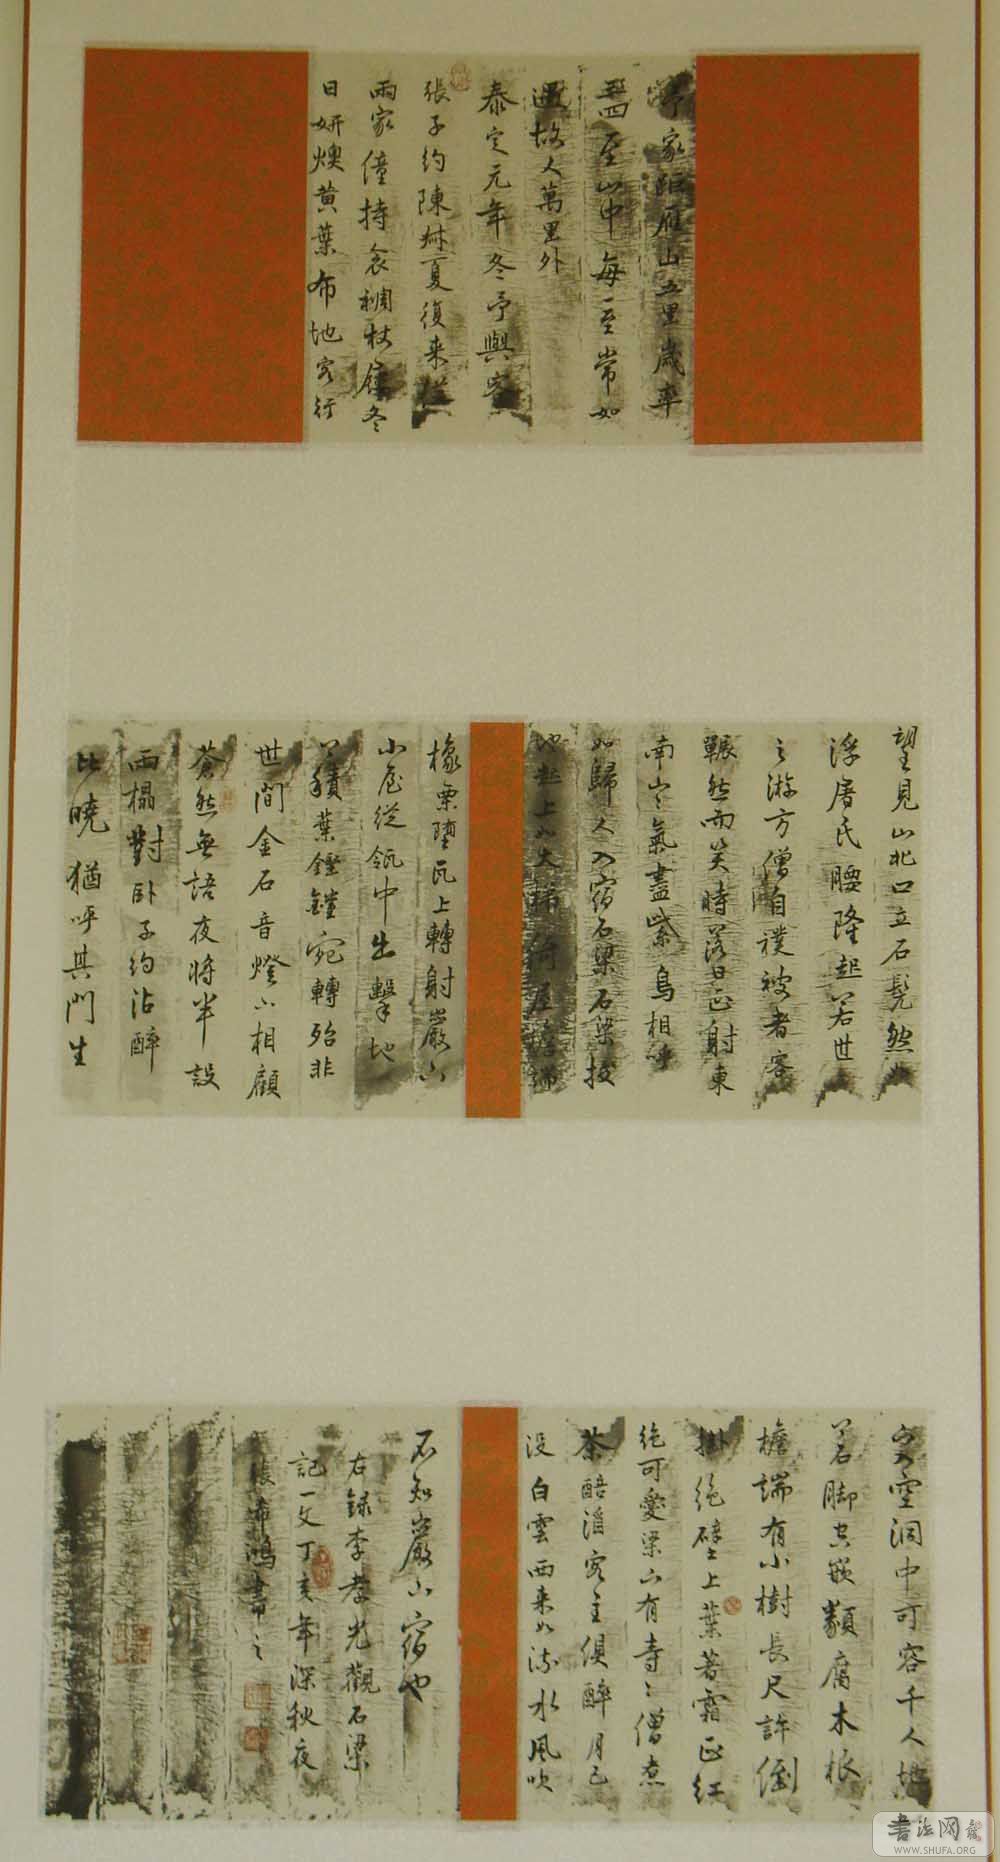 予家距雁山五里歲率
三四至山中每一至常如
遇故人萬里外
泰定元年冬予與客
張子約陳叔夏復來從
兩家僮持衾裯杖屨冬
日妍燠黄葉布地客行
望見山北口立石髡然如
浮屠氏腰隆起若世
之游方僧自襆被者客
冁然而笑時落日正射東
南山山氣盡紫鳥相呼
如歸人入宿石梁石梁拔
地起上如大梯倚屋檐端
下入空洞中可容千人地
上石脚空嵌類腐木根
檐端有小樹長尺許倒
掛絶壁上葉著霜正紅
絶可愛梁下有寺寺僧煮
茶醅酒客主俱醉月已
没白雲西來如流水風吹
橡栗墮瓦上轉射巖下
小屋從瓴中出擊地
上積葉鏗鏜宛轉殆非
世間金石音燈下相顧
蒼然無語夜將半設
兩榻對卧子約沾醉
比曉猶呼其門生
不知巖下宿也
右録李孝光觀石梁
記一文丁亥年深秋夜
張希鴻書之
書法网
WWW.SHUFA.ORG